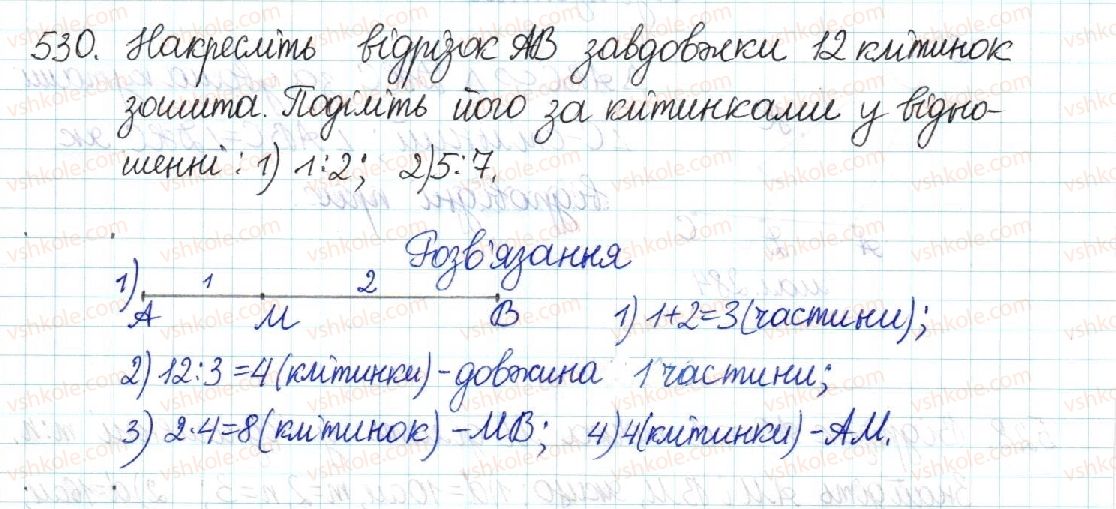 530. Накресліть відрізок AB завдовжки 12 клітинок
зошита. Поділіть його за клітинками у відно-
шенні: 1) 1:2; 2) 5:7.
Розв'язання
1) 1 2
A M B 1) 1+2=3 (частини);
2) 12:3=4 (клітинки) - довжина 1 частини;
3) 2·4=8 (клітинок) - MB; 4) 4 (клітинки) - AM.